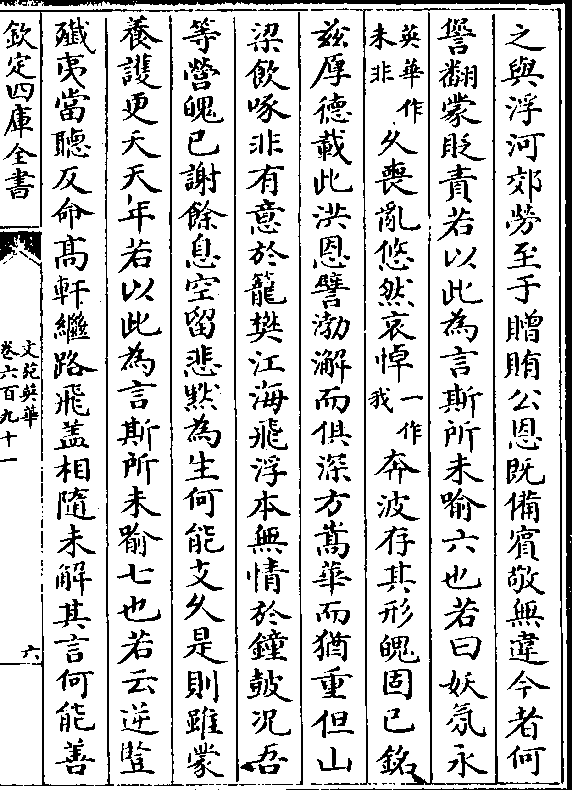 之與浮河郊勞至于贈賄公恩既備賓敬無違今者何
譽翻蒙貶責若以此為言斯所未喻六也若曰妖氛永
英華作未非久喪亂悠然哀悼一作我奔波存其形魄固已銘
兹厚德載此洪恩譬渤澥而俱深方嵩華而猶重但山
梁飲啄非有意於籠樊江海飛浮本無情於鐘皷况吾
等營魄已謝餘息空留悲默為生何能支久是則雖蒙
養護更夭天年若以此為言斯所未喻七也若云逆豎
殲夷當聽反命髙軒繼路飛盖相隨未解其言何能善
欽定四庫全書
文苑英華
卷六百九十一
六